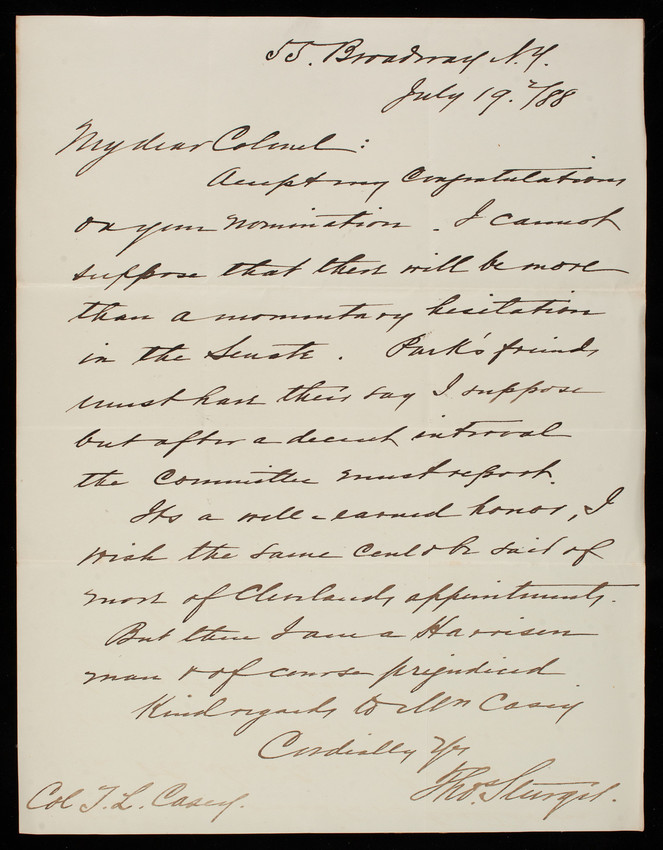 55. Broadway N.Y.
July 19th/88
My dear Colonel:
Accept my Congratulations
on your nomination. I cannot
suppose that there will be more
than a momentary hesitation
in the Senate. Park's friends
must have their say I suppose
but after a decent interval
the Committee must report.
Its a well-earned honor, I
wish the same could be said of
most of Cleveland's appointments.
But then I am a Harrison
man & of course prejudiced
Kind regards to Mrs Casey
Cordially Yrs
Thos. Sturgis.
Col T. L. Casey.